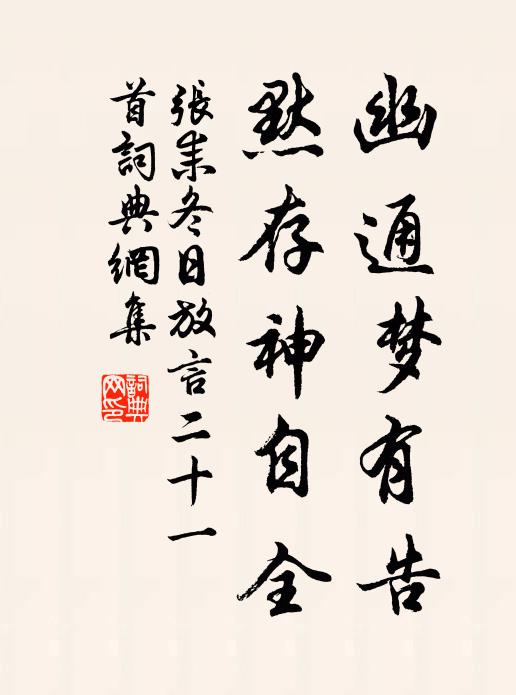 幽通梦有告
默存神自全
張耒冬日放言二十一
首詞典網集
詞典
网印